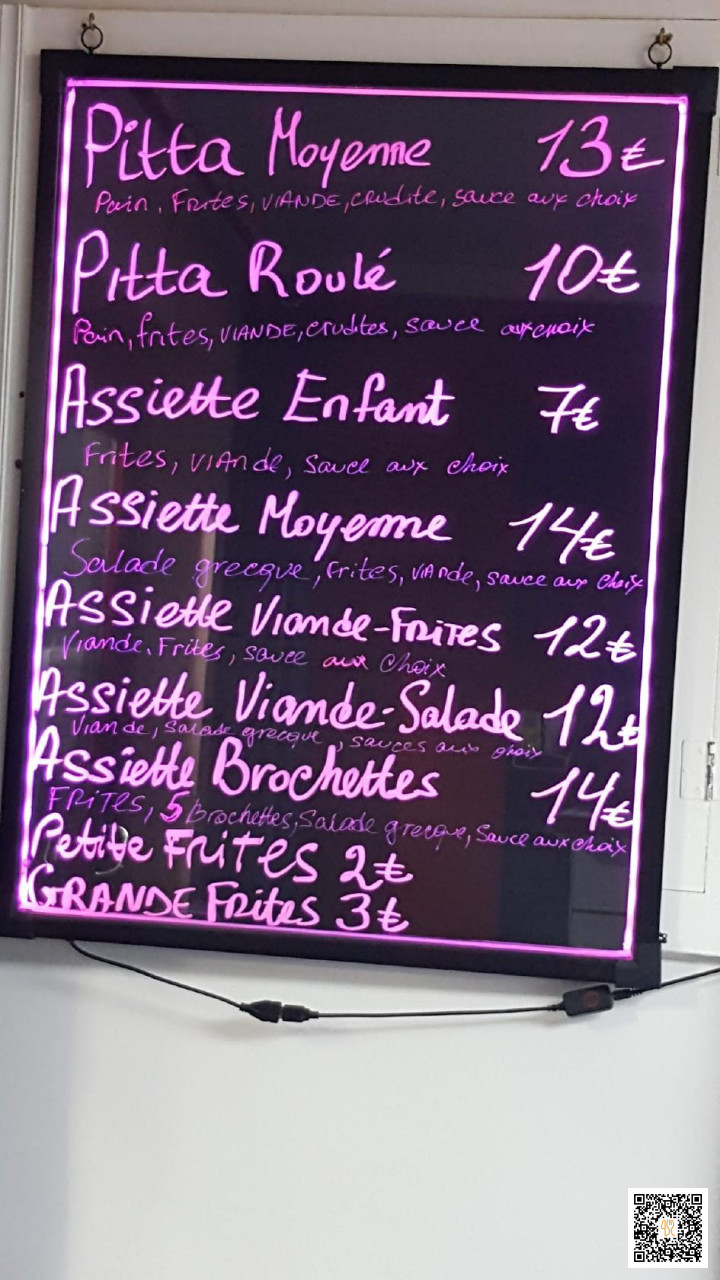 Pitta Moyenne 13€
Pain, Frites, VIANDE, crudite, sauce aux choix
Pitta Roulé 10€
Pain, frites, VIANDE, crudites, sauce aux choix
Assiette Enfant 7€
Frites, viande, sauce aux choix
Assiette Moyenne 14€
Salade grecque, frites, viande, sauce aux choix
Assiette Viande-Frites 12€
Viande, Frites, sauce aux choix
Assiette Viande-Salade 12€
Viande, salade grecque, sauces aux choix
Assiette Brochettes 14€
FRITES, 5 brochettes, Salade grecque, Sauce aux choix
Petite FRITES 2€
GRANDE Frites 3€